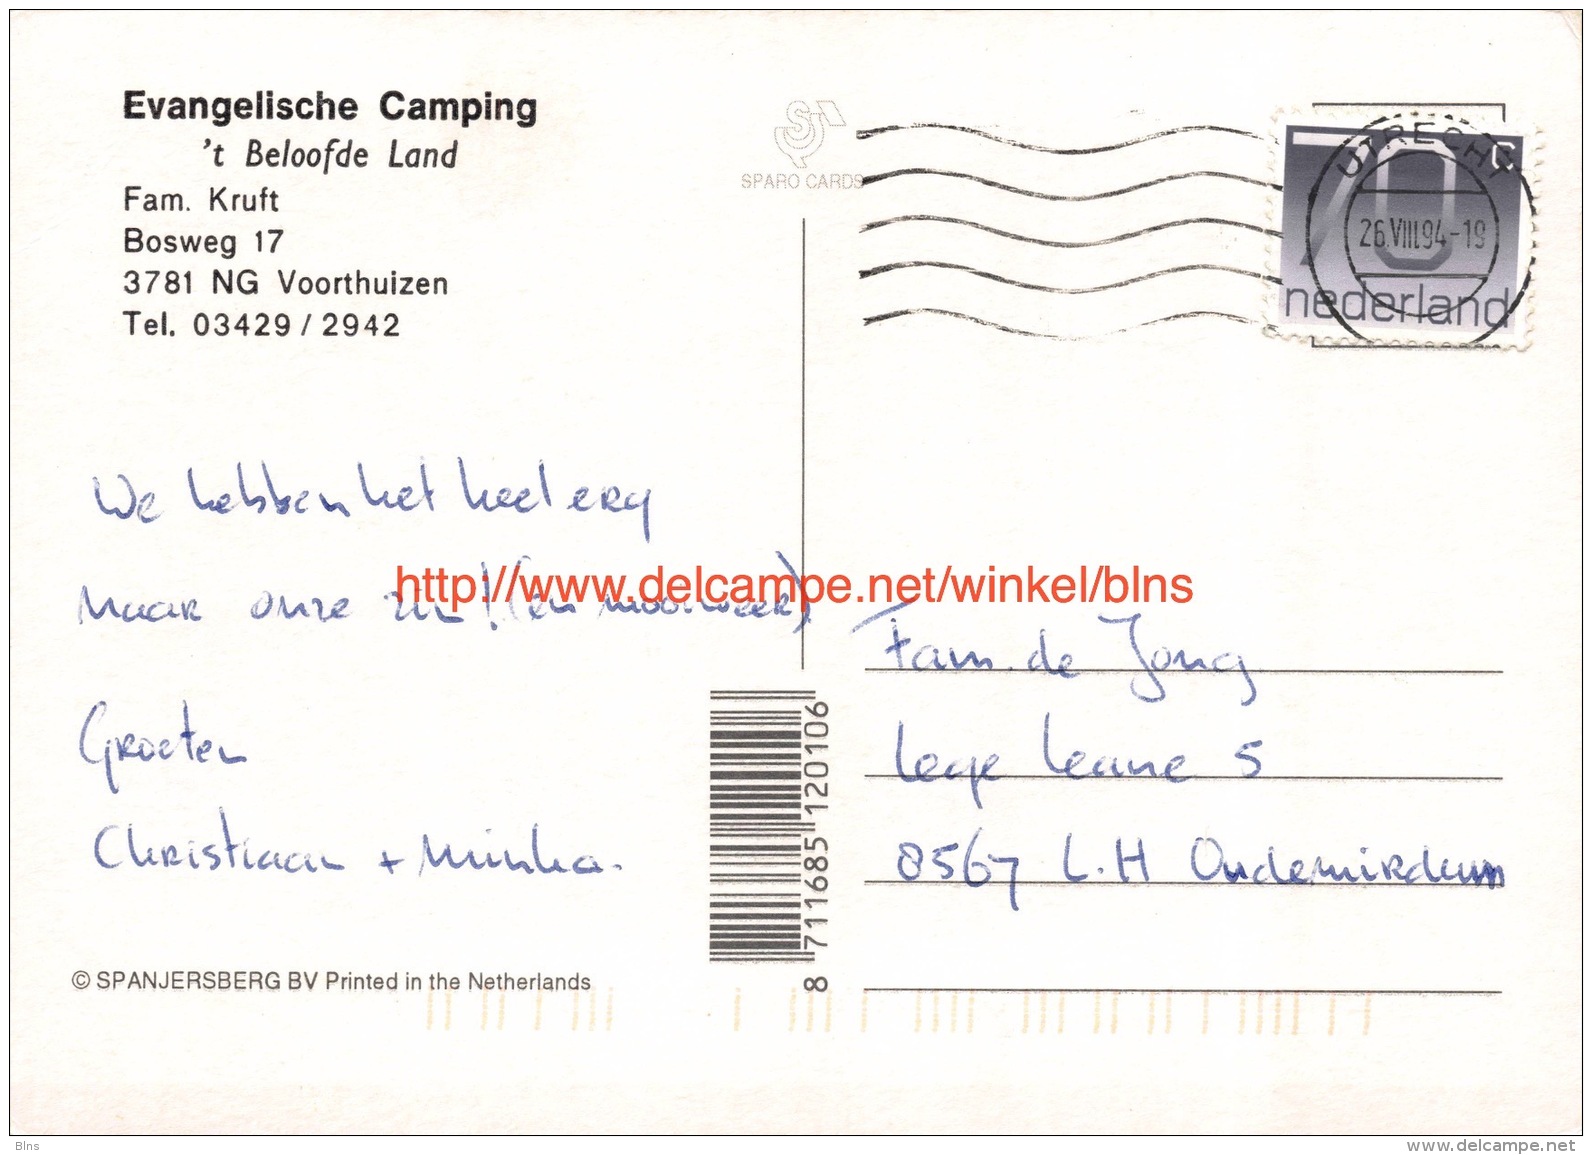 Evangelische Camping
't Beloofde Land
Fam. Kruft
Bosweg 17
3781 NG Voorthuizen
Tel. 03429 / 2942
SPARO CARDS
UTRECHT
26.VIII.94-19
70 c
nederland
We hebben het heel erg
naar onze zin! (en mooi weer)
Groeten
Christiaan + Minka.
http://www.delcampe.net/winkel/blns
Fam. de Jong
Lege Leane 5
8567 L.H Oudemirdum
8 711685 120106
© SPANJERSBERG BV Printed in the Netherlands
Blns
www.delcampe.net